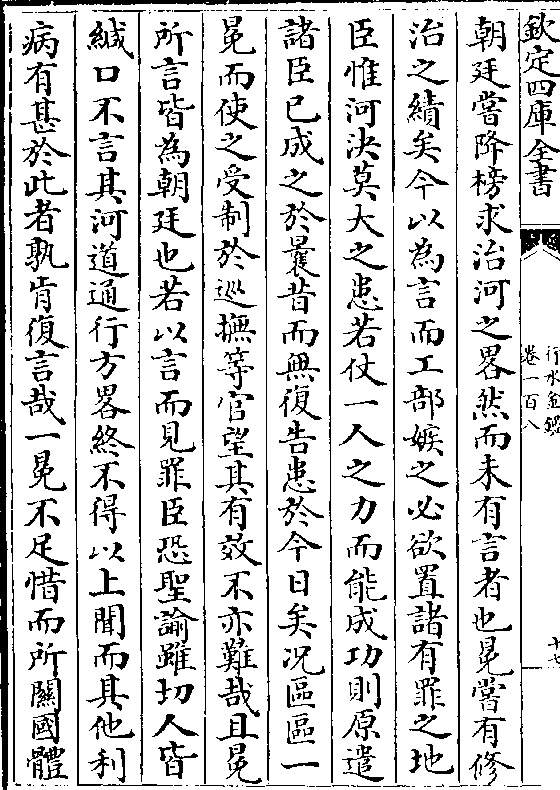 欽定四庫全書
行水金鑑
卷一百八
十七
朝廷嘗降榜求治河之畧然而未有言者也冕嘗有修
治之績矣今以為言而工部嫉之必欲置諸有罪之地
臣惟河決莫大之患若仗一人之力而能成功則原遣
諸臣已成之於曩昔而無復告患於今日矣况區區一
冕而使之受制於巡撫等官望其有效不亦難哉且冕
所言皆為朝廷也若以言而見罪臣恐聖諭雖切人皆
緘口不言其河道通行方畧終不得以上聞而其他利
病有甚於此者孰肯復言哉一冕不足惜而所關國體